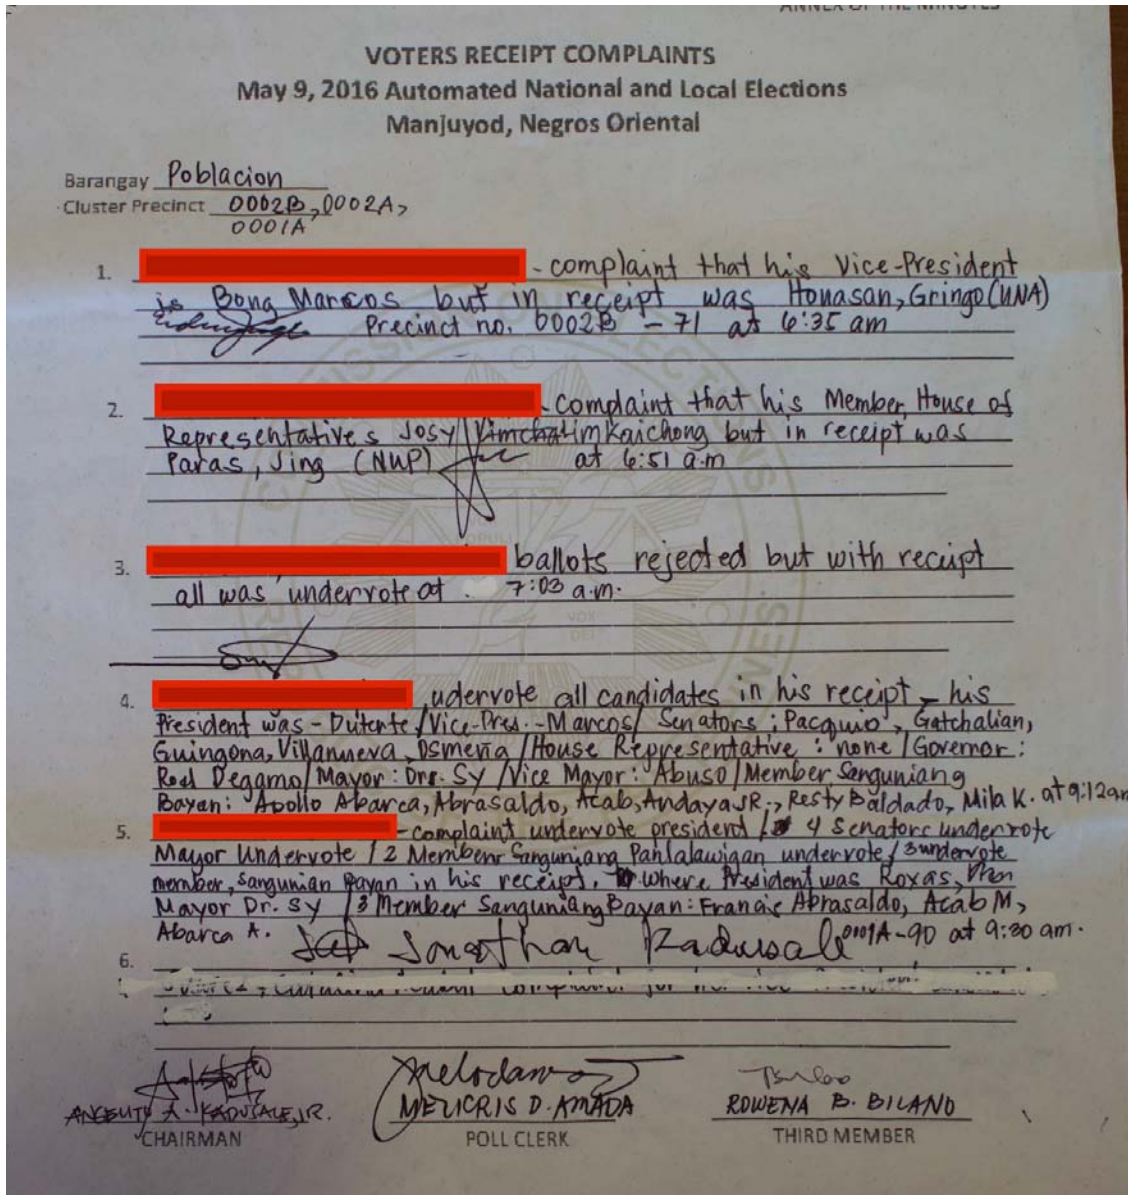 ANNEX OF THE MINUTES
VOTERS RECEIPT COMPLAINTS
May 9, 2016 Automated National and Local Elections
Manjuyod, Negros Oriental
Barangay Poblacion
Cluster Precinct 0002B, 0002A,
0001A
1. - complaint that his Vice-President
is Bong Marcos but in receipt was Honasan, Gringo (UNA)
Precinct no. 0002B - 71 at 6:35 am
2. - complaint that his Member, House of
Representatives Josy Limkaichong but in receipt was
Paras, Jing (NUP) at 6:51 a.m
3. ballots rejected but with receipt
all was undervote at 7:03 a.m.
4. udervote all candidates in his receipt - his
President was - Duterte / Vice-Pres. - Marcos / Senators : Pacquio, Gatchalian,
Guingona, Villanueva, Osmeña / House Representative : none / Governor :
Roel Degamo / Mayor : Dr. Sy / Vice Mayor : Abuso / Member Sanguniang
Bayan : Apollo Abarca, Abrasaldo, Acab, Andaya JR., Resty Baldado, Mila K. at 9:12am
5. - complaint undervote president / 4 Senators undervote
Mayor Undervote / 2 Members Sanguniang Panlalawigan undervote / 3 undervote
member, Sangunian Bayan in his receipt. where President was Roxas,
Mayor Dr. Sy / 3 Member Sanguniang Bayan : Francis Abrasaldo, Acab M,
Abarca A. Jonathan Kadusale 0001A-90 at 9:20 am.
6.
ANGELITO A. KADUSALE, JR. MELICRIS D. AMADA ROWENA B. BILANO
CHAIRMAN POLL CLERK THIRD MEMBER
COMMISSION ON ELECTIONS
VOX
DEI